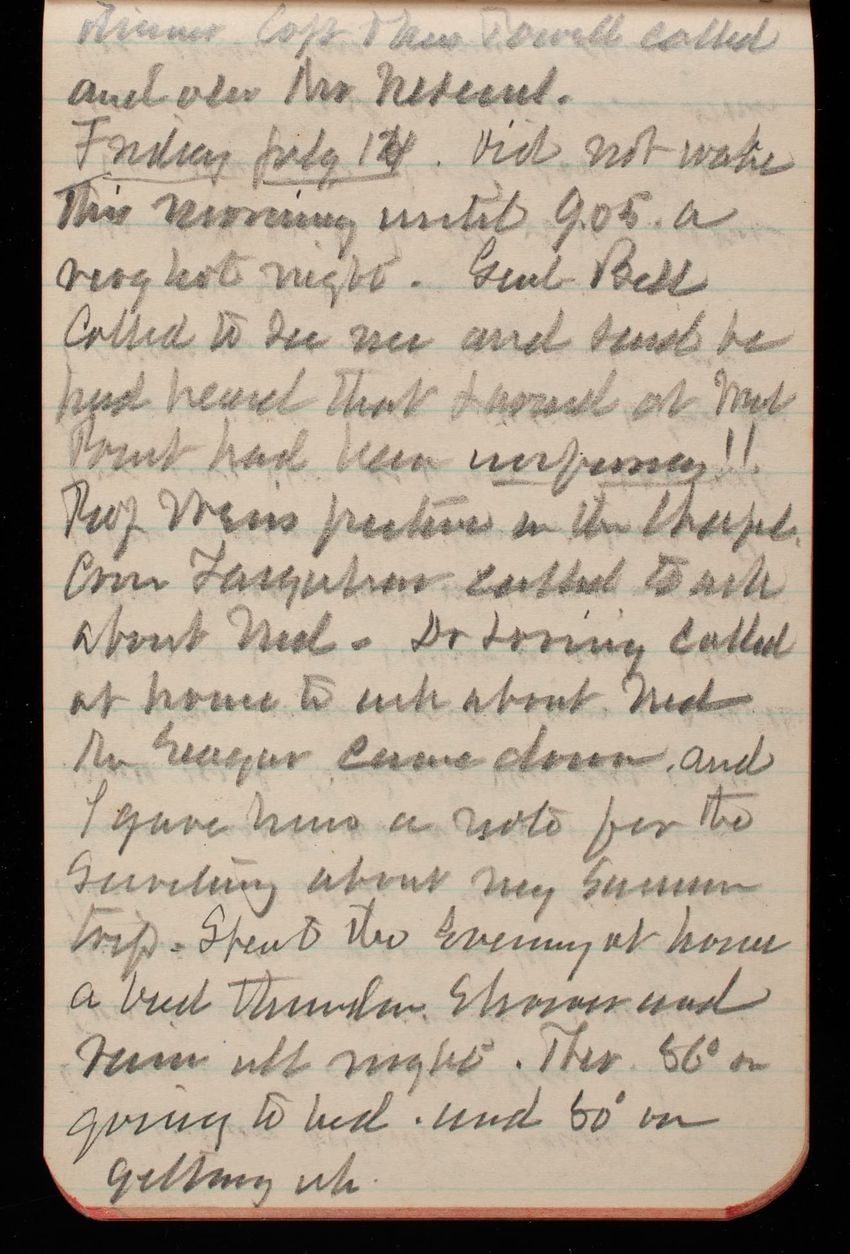 dinner Capt Thos Towell called
and also Mr
Friday July 14. Did not wake
this morning until 9.05. a
very hot night. Genl Bell
Called to see me and said he
had heard that I would at West
Point had been !!
Prof picture in the Chapel.
Com Farquhar called to ask
about Ned. Dr Loring called
at house to ask about Ned
Mr Seagar came down. and
I gave him a note for the
about my Summer
trip. Spent the Evening at home
a bad thunder Shower and
rain all night. Ther. 86° on
going to bed. and 80° on
getting up.